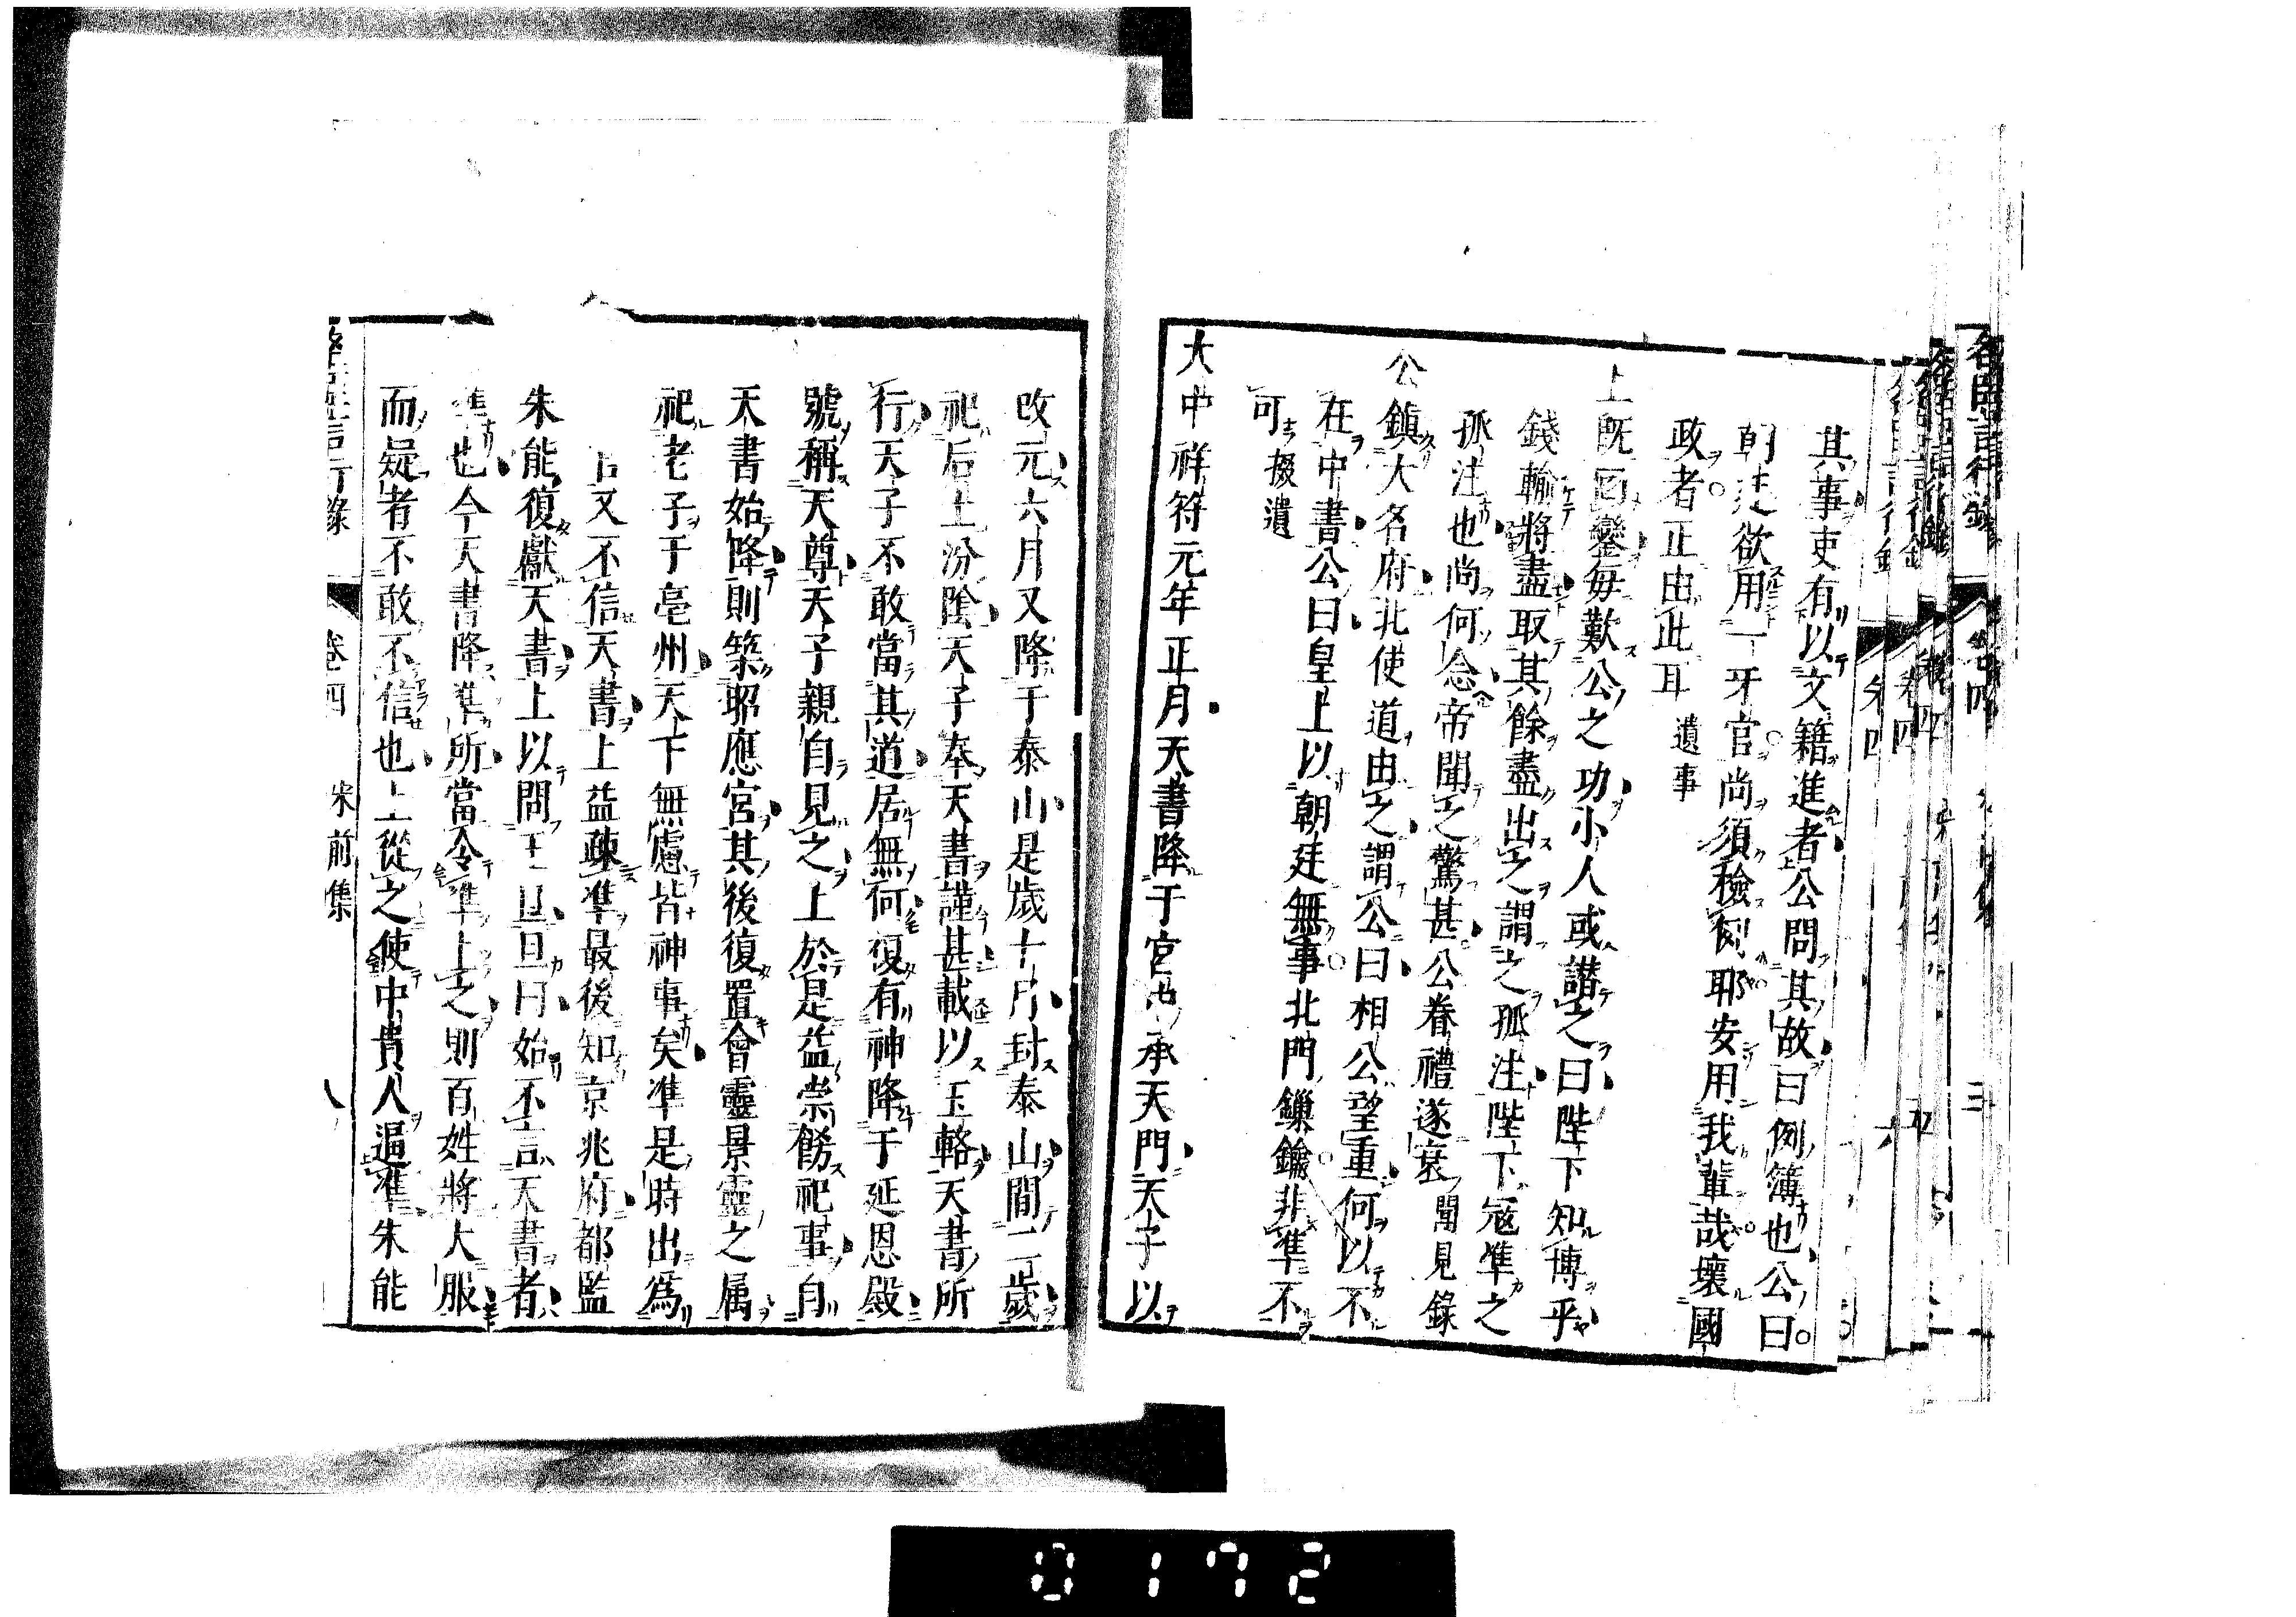 其事吏有以文籍進者公問其故曰例簿也公曰
朝廷欲用一牙官尚須檢例耶安用我輩哉壞國
政者正由此耳 遺事
上既回鑾每歎公之功小人或譖之曰陛下知博乎
錢輸將盡取其餘盡出之謂之孤注陛下寇準之
孤注也尚何念帝聞之驚甚公眷禮遂衰 聞見錄
公鎮大名府北使道由之謂公曰相公望重何以不
在中書公曰皇上以朝廷無事北門鏁鑰非準不
可 掇遺
大中祥符元年正月天書降于宮 承天門天子以
改元六月又降于泰山是歲十月封泰山間二歲
祀后土汾陰天子奉天書謹甚載以玉輅天書所
行天子不敢當其道居無何復有神降于延恩殿
號稱天尊天子親自見之上於是益崇餝祀事自
天書始降則築昭應宮其後復置會靈景靈之属
祀老子于亳州天下無慮皆神事矣準是時出為
又不信天書上益疎準最後知京兆府都監
朱能復獻天書上以問王旦旦曰始不言天書者
準也今天書降準所當令準上之則百姓將大服
而疑者不敢不信也上從之使中貴人逼準朱能
言行錄 卷四 宋前集 八